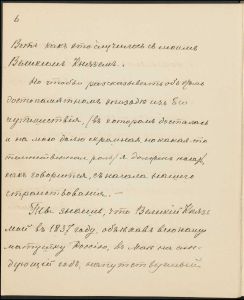 6
Вотъ какъ это случилось съ моимъ
Великимъ Княземъ.
Но чтобы разсказывать объ этомъ
достопамятномъ эпизодѣ изъ Его
путешествія, /въ которомъ досталась
и на мою долю скромная
роль/ я долженъ начать,
какъ говорится, съ начала нашего
странствованія. —
что Великій Князь
мой въ 1837 году, объѣхавъ всю нашу
матушку Россію, въ Маѣ на слѣ-
дующій годъ,